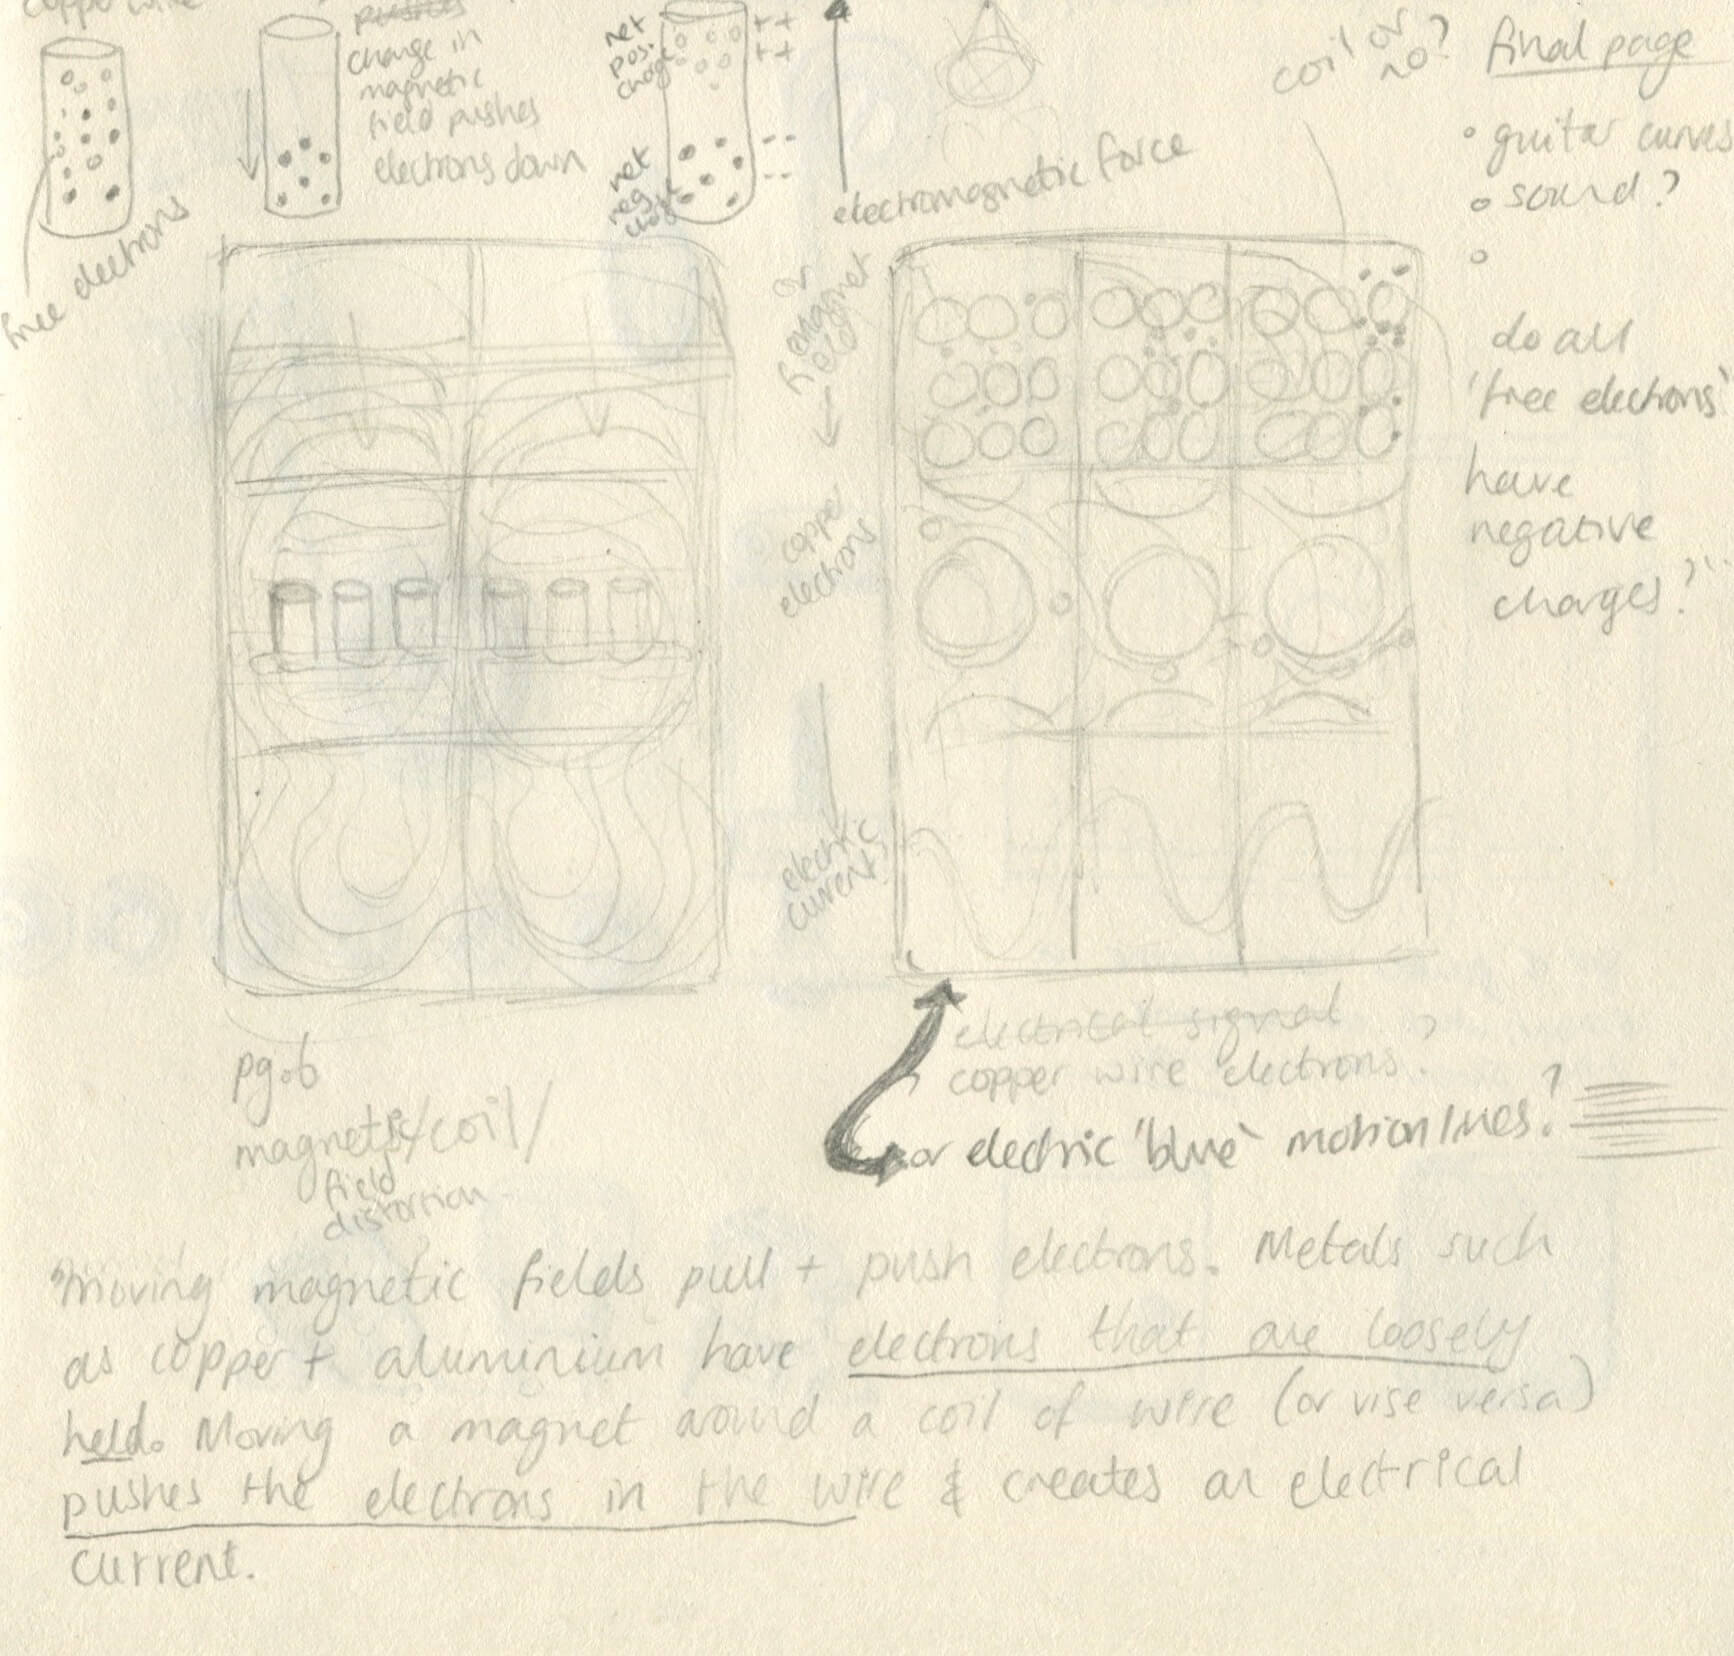 copper wire
free electrons
pushes
change in
magnetic
field pushes
electrons down
net
pos.
charge
++
++
net
neg.
charge
--
--
electromagnetic force
coil or
no?
final page
guitar curves
sound?
do all
'free electrons'
have
negative
charges?
or
magnet
field
copper
electrons
electric
current?
pg.6
magnetic/coil/
field
distortion
electrical signal
copper wire electrons?
or electric 'blue' motion lines?
"Moving magnetic fields pull + push electrons. Metals such
as copper + aluminium have electrons that are loosely
held. Moving a magnet around a coil of wire (or vise versa)
pushes the electrons in the wire & creates an electrical
current.